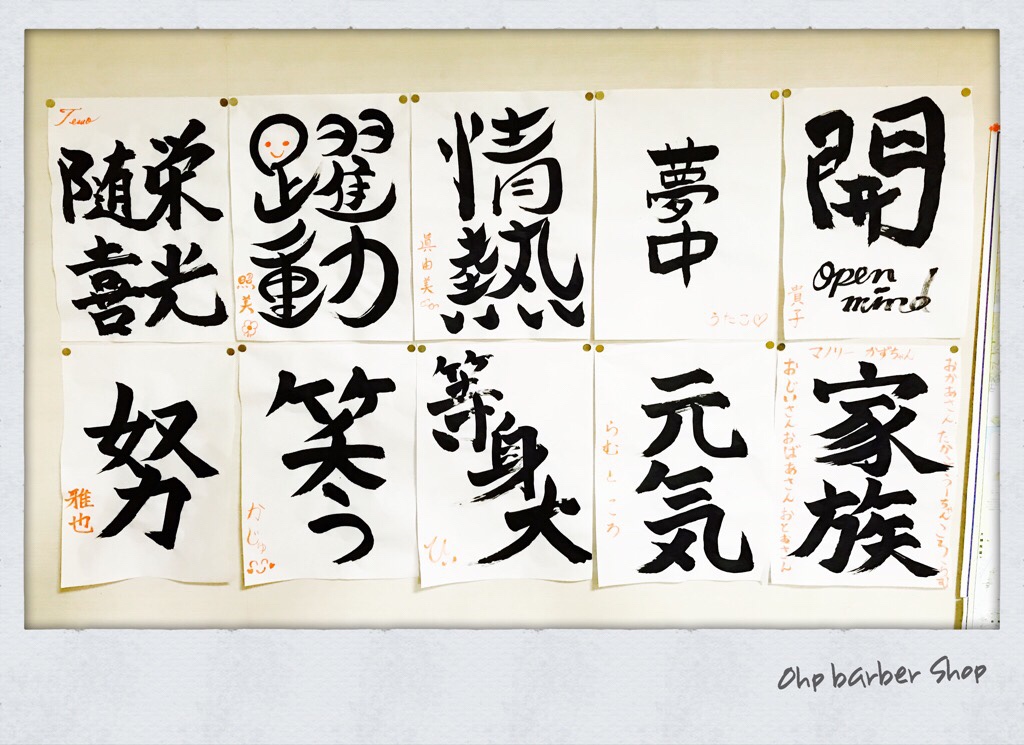 栄光
随喜
躍動
照美
情熱
眞由美
夢中
うたこ♡
開
Open
mind
貴子
努
雅也
笑う
かじゅ
等身大
ひ。
元気
らむところ
マノリー かずちゃん
おかあさん
家族
おじいさんおばあさんおとおさん
Ohp barber Shop